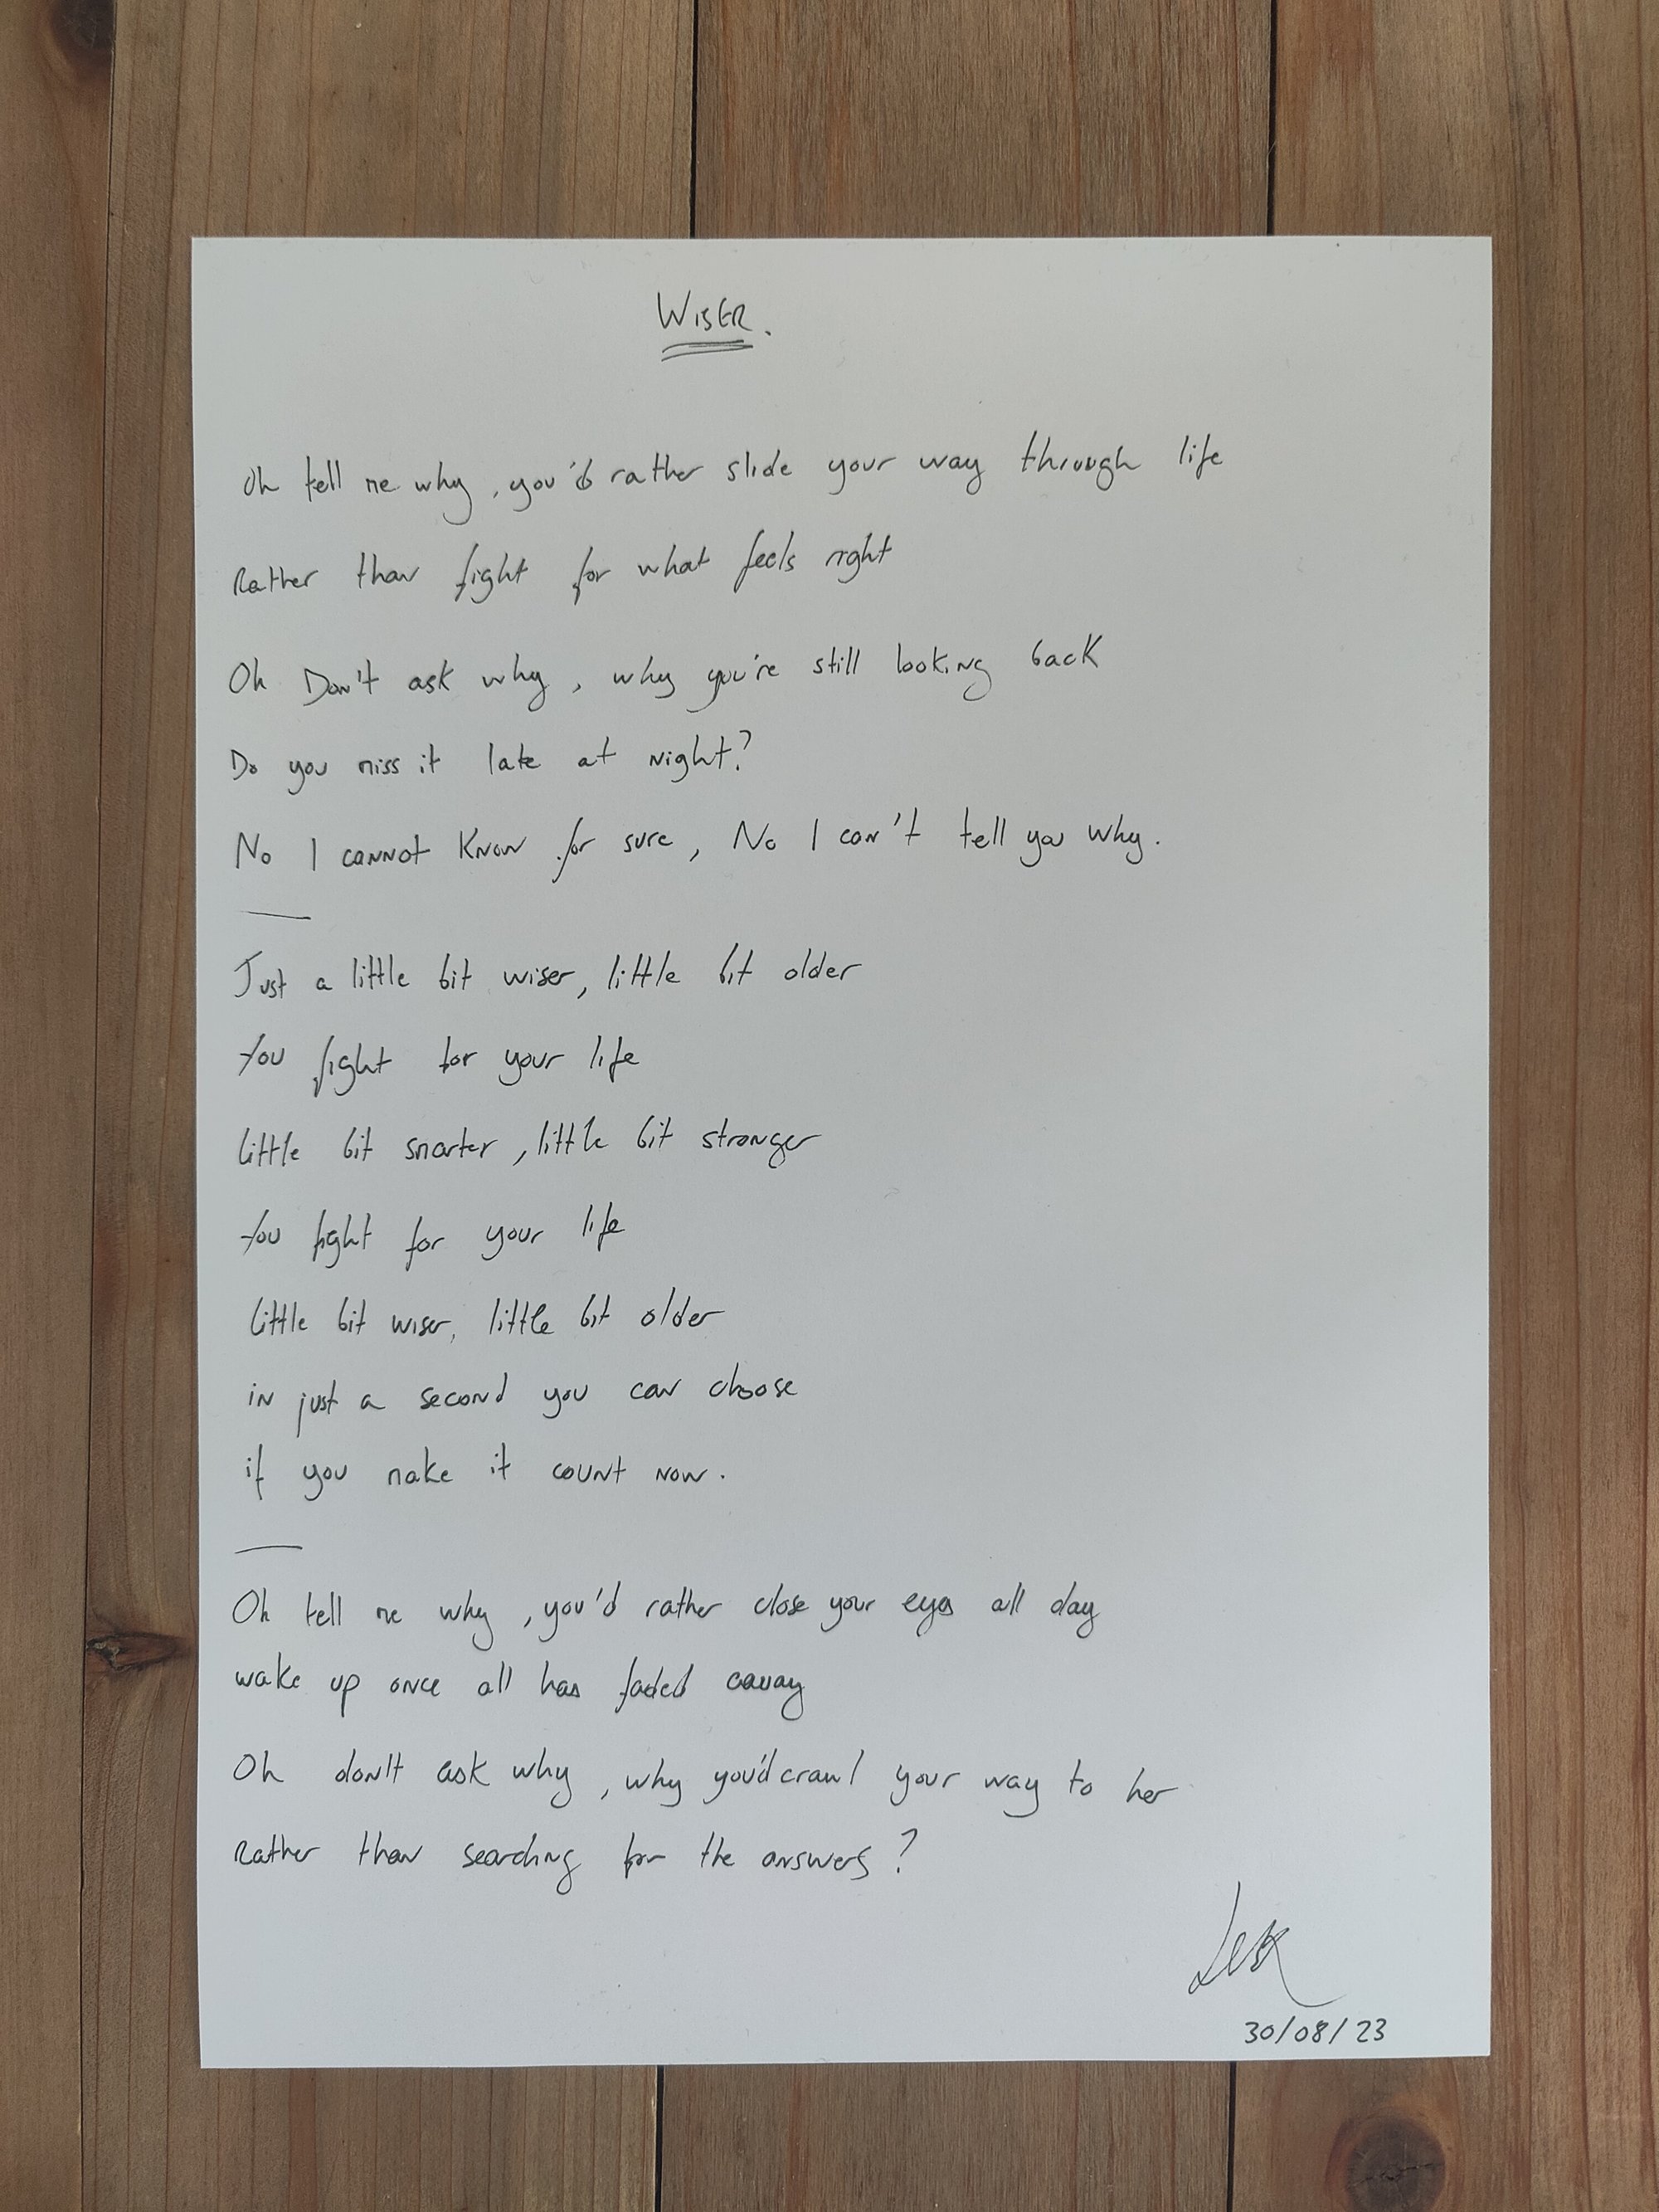 WISER.
Oh tell me why, you'd rather slide your way through life
Rather than fight for what feels right
Oh Don't ask why, why you're still looking back
Do you miss it late at night?
No I cannot know for sure, No I can't tell you why.
Just a little bit wiser, little bit older
You fight for your life
little bit smarter, little bit stronger
You fight for your life
little bit wiser, little bit older
in just a second you can choose
if you make it count now.
Oh tell me why, you'd rather close your eyes all day
wake up once all has faded away
Oh don't ask why, why you'd crawl your way to her
Rather than searching for the answers?
30/08/23